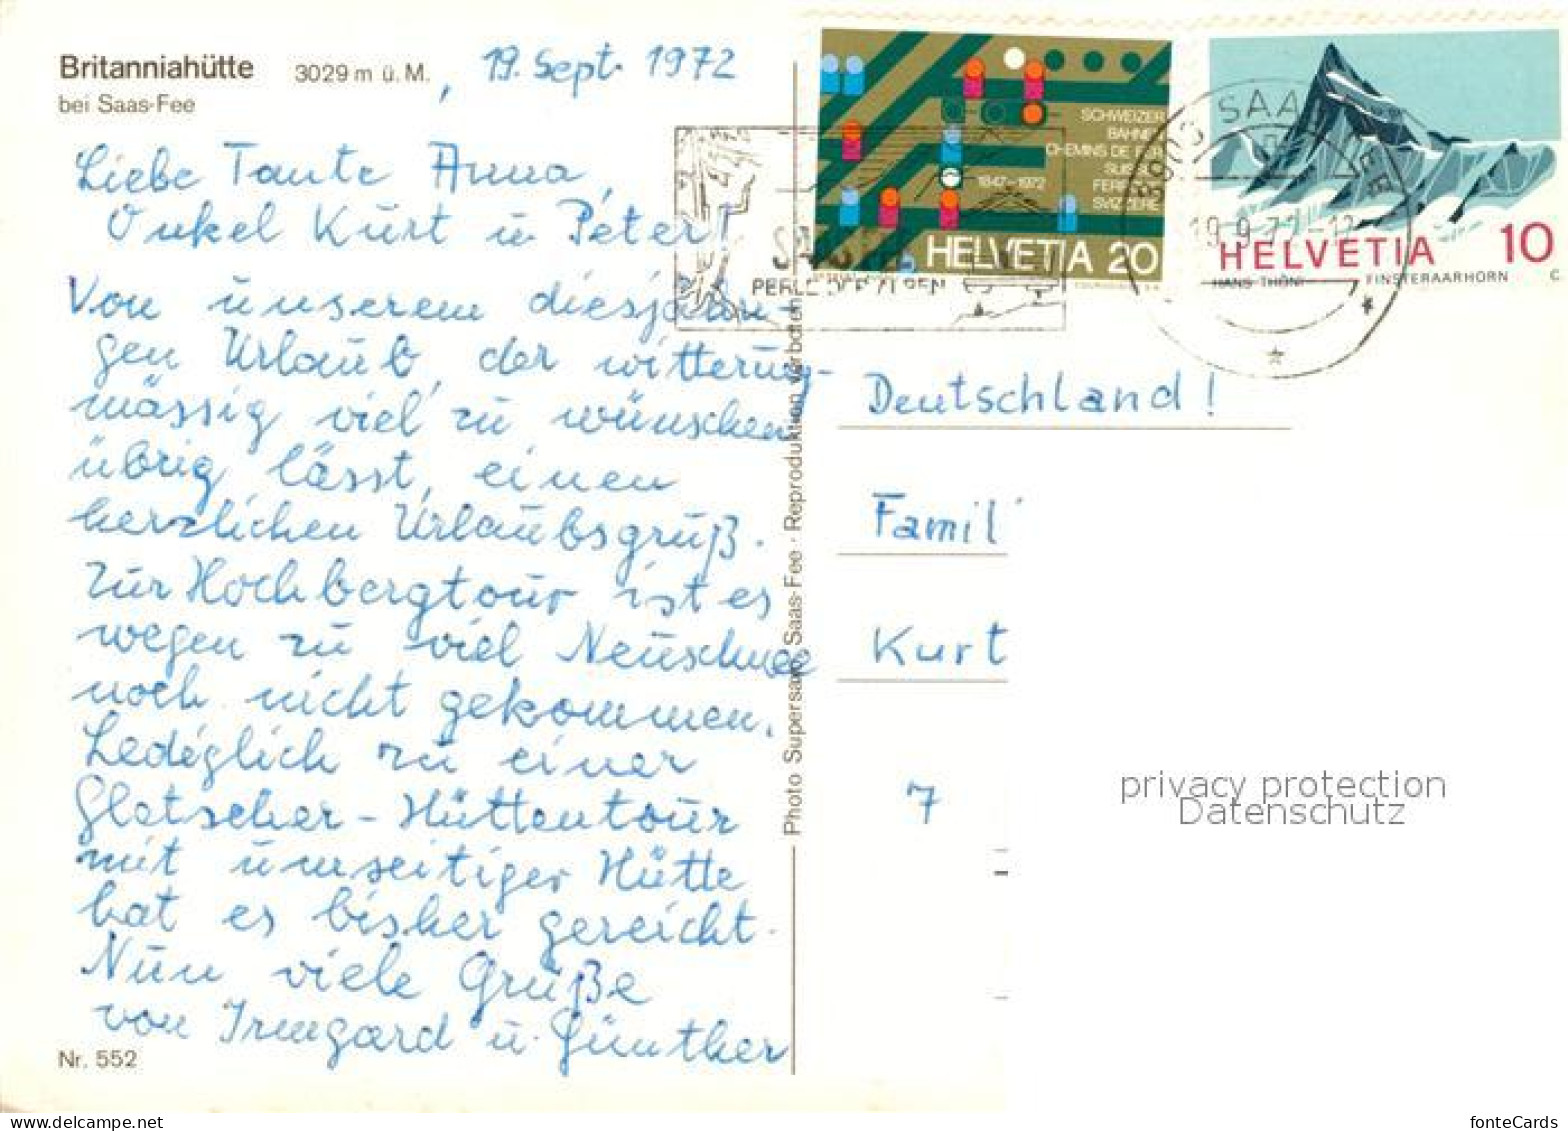 Britanniahütte 3029 m ü. M.
bei Saas-Fee
, 19. Sept. 1972
Liebe Tante Anna,
Onkel Kurt u. Peter!
Von unserem diesjähri-
gen Urlaub, der witterung-
mässig viel zu wünschen
übrig lässt, einen
herzlichen Urlaubsgruß.
Zur Hochbergtour ist es
wegen zu viel Neuschnee
noch nicht gekommen.
Lediglich zu einer
Gletscher-Hüttentour
mit umseitiger Hütte
hat es bisher gereicht.
Nun viele Grüße
von Irmgard u. Günther
Nr. 552
Photo Supersaxo, Saas-Fee · Reproduktion verboten
PERLE DER ALPEN
SCHWEIZER
BAHNEN
CHEMINS DE FER
SUISSES
FERROVIE
SVIZZERE
1847-1972
HELVETIA 20
HELVETIA 10
HANS THÖNI FINSTERAARHORN
Deutschland!
Famil
Kurt
7
privacy protection
Datenschutz
fonteCards